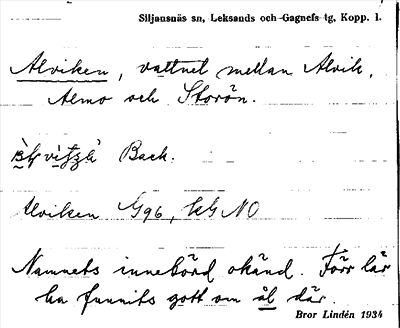 Siljansnäs sn, Leksands och Gagnefs tg, Kopp. l.
Alviken, vattnet mellan Alvik,
Almo och Storön.
Back.
Alviken G96, kg NO
Namnets innebörd okänd. Förr lär
ha funnits gott om ål där.
Bror Lindén 1934